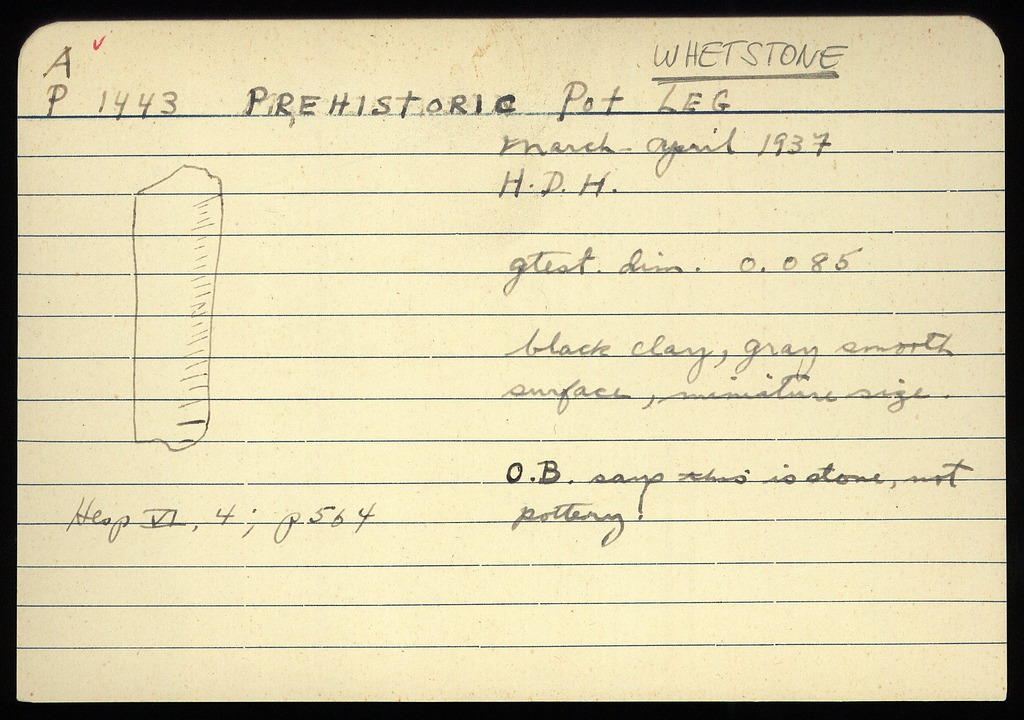 A
WHETSTONE
P 1443 PREHISTORIC Pot LEG
March-April 1937
H.D.H.
gtest. dim. 0.085
black clay, gray smooth
surface, miniature size.
O.B. says this is stone, not
pottery!
Hesp VI, 4; p564